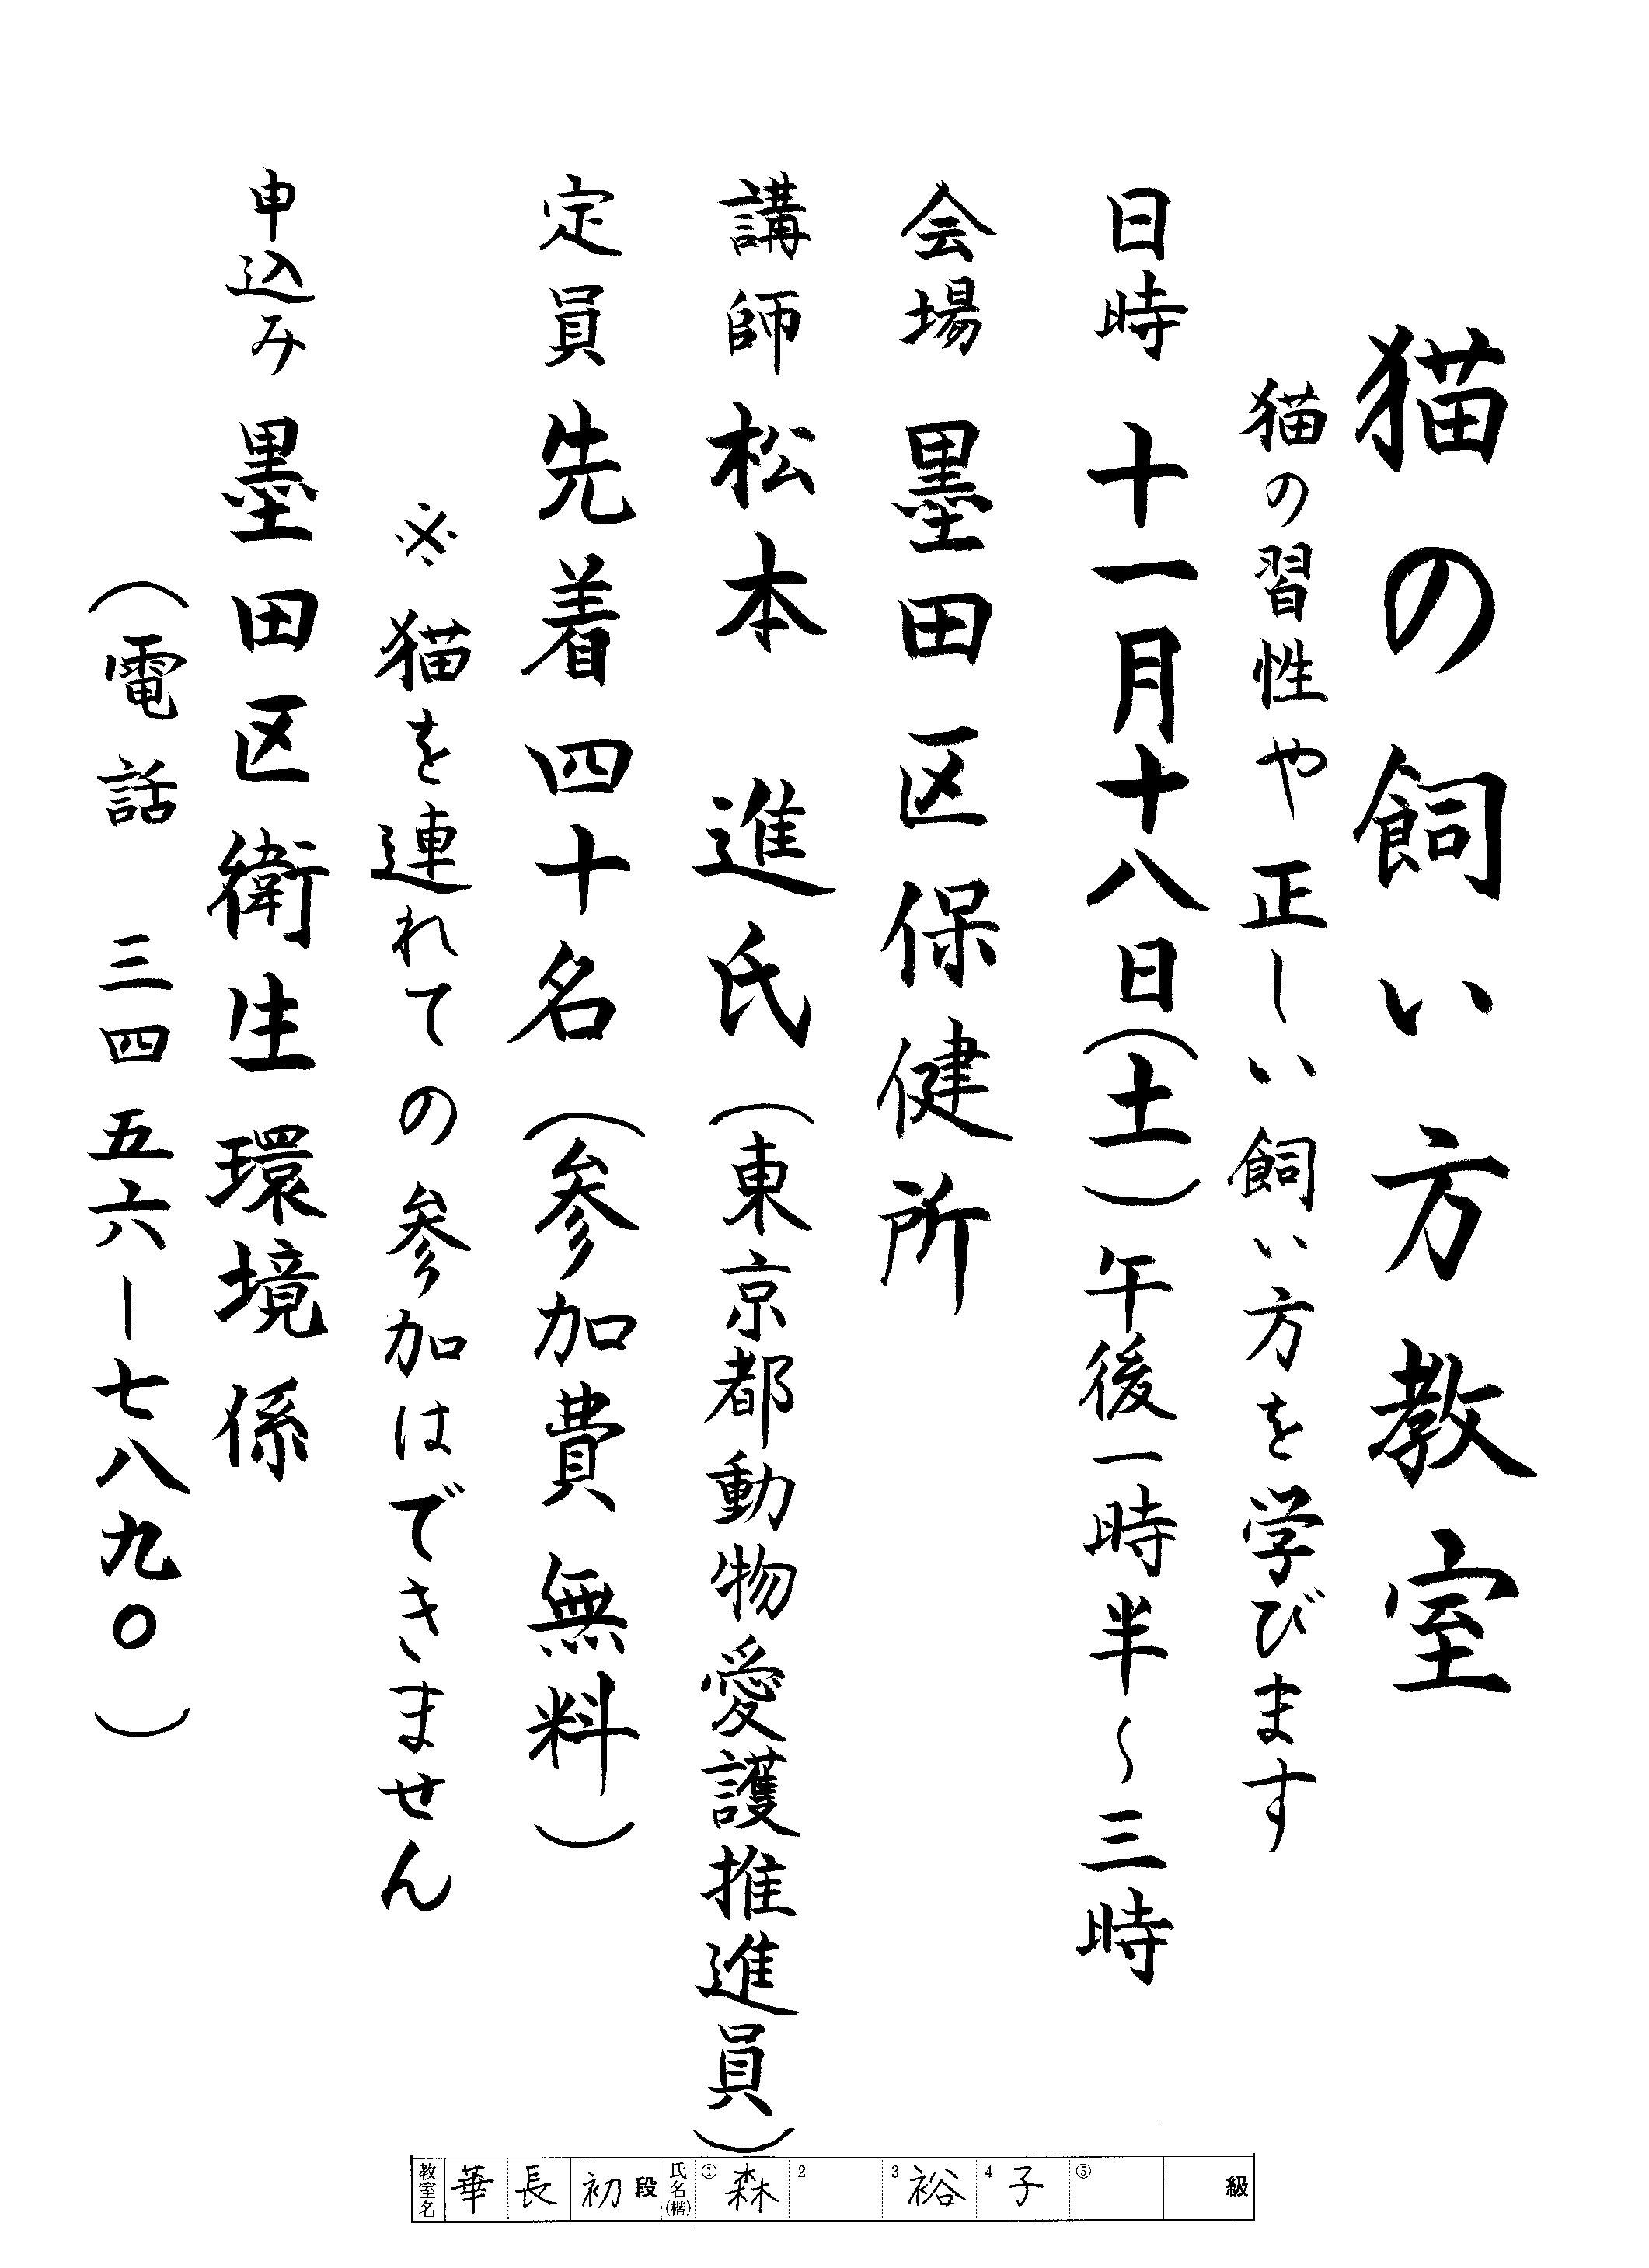 猫の飼い方教室
猫の習性や正しい飼い方を学びます
日時 十一月十八日(土)午後一時半～三時
会場 墨田区保健所
講師 松本 進氏(東京都動物愛護推進員)
定員 先着四十名(参加費無料)
※猫を連れての参加はできません
申込み 墨田区衛生環境係
(電話 三四五六ー七八九〇)
教室名 華長 初段 氏名(楷) ①森 2 3裕 4子 ⑤ 級